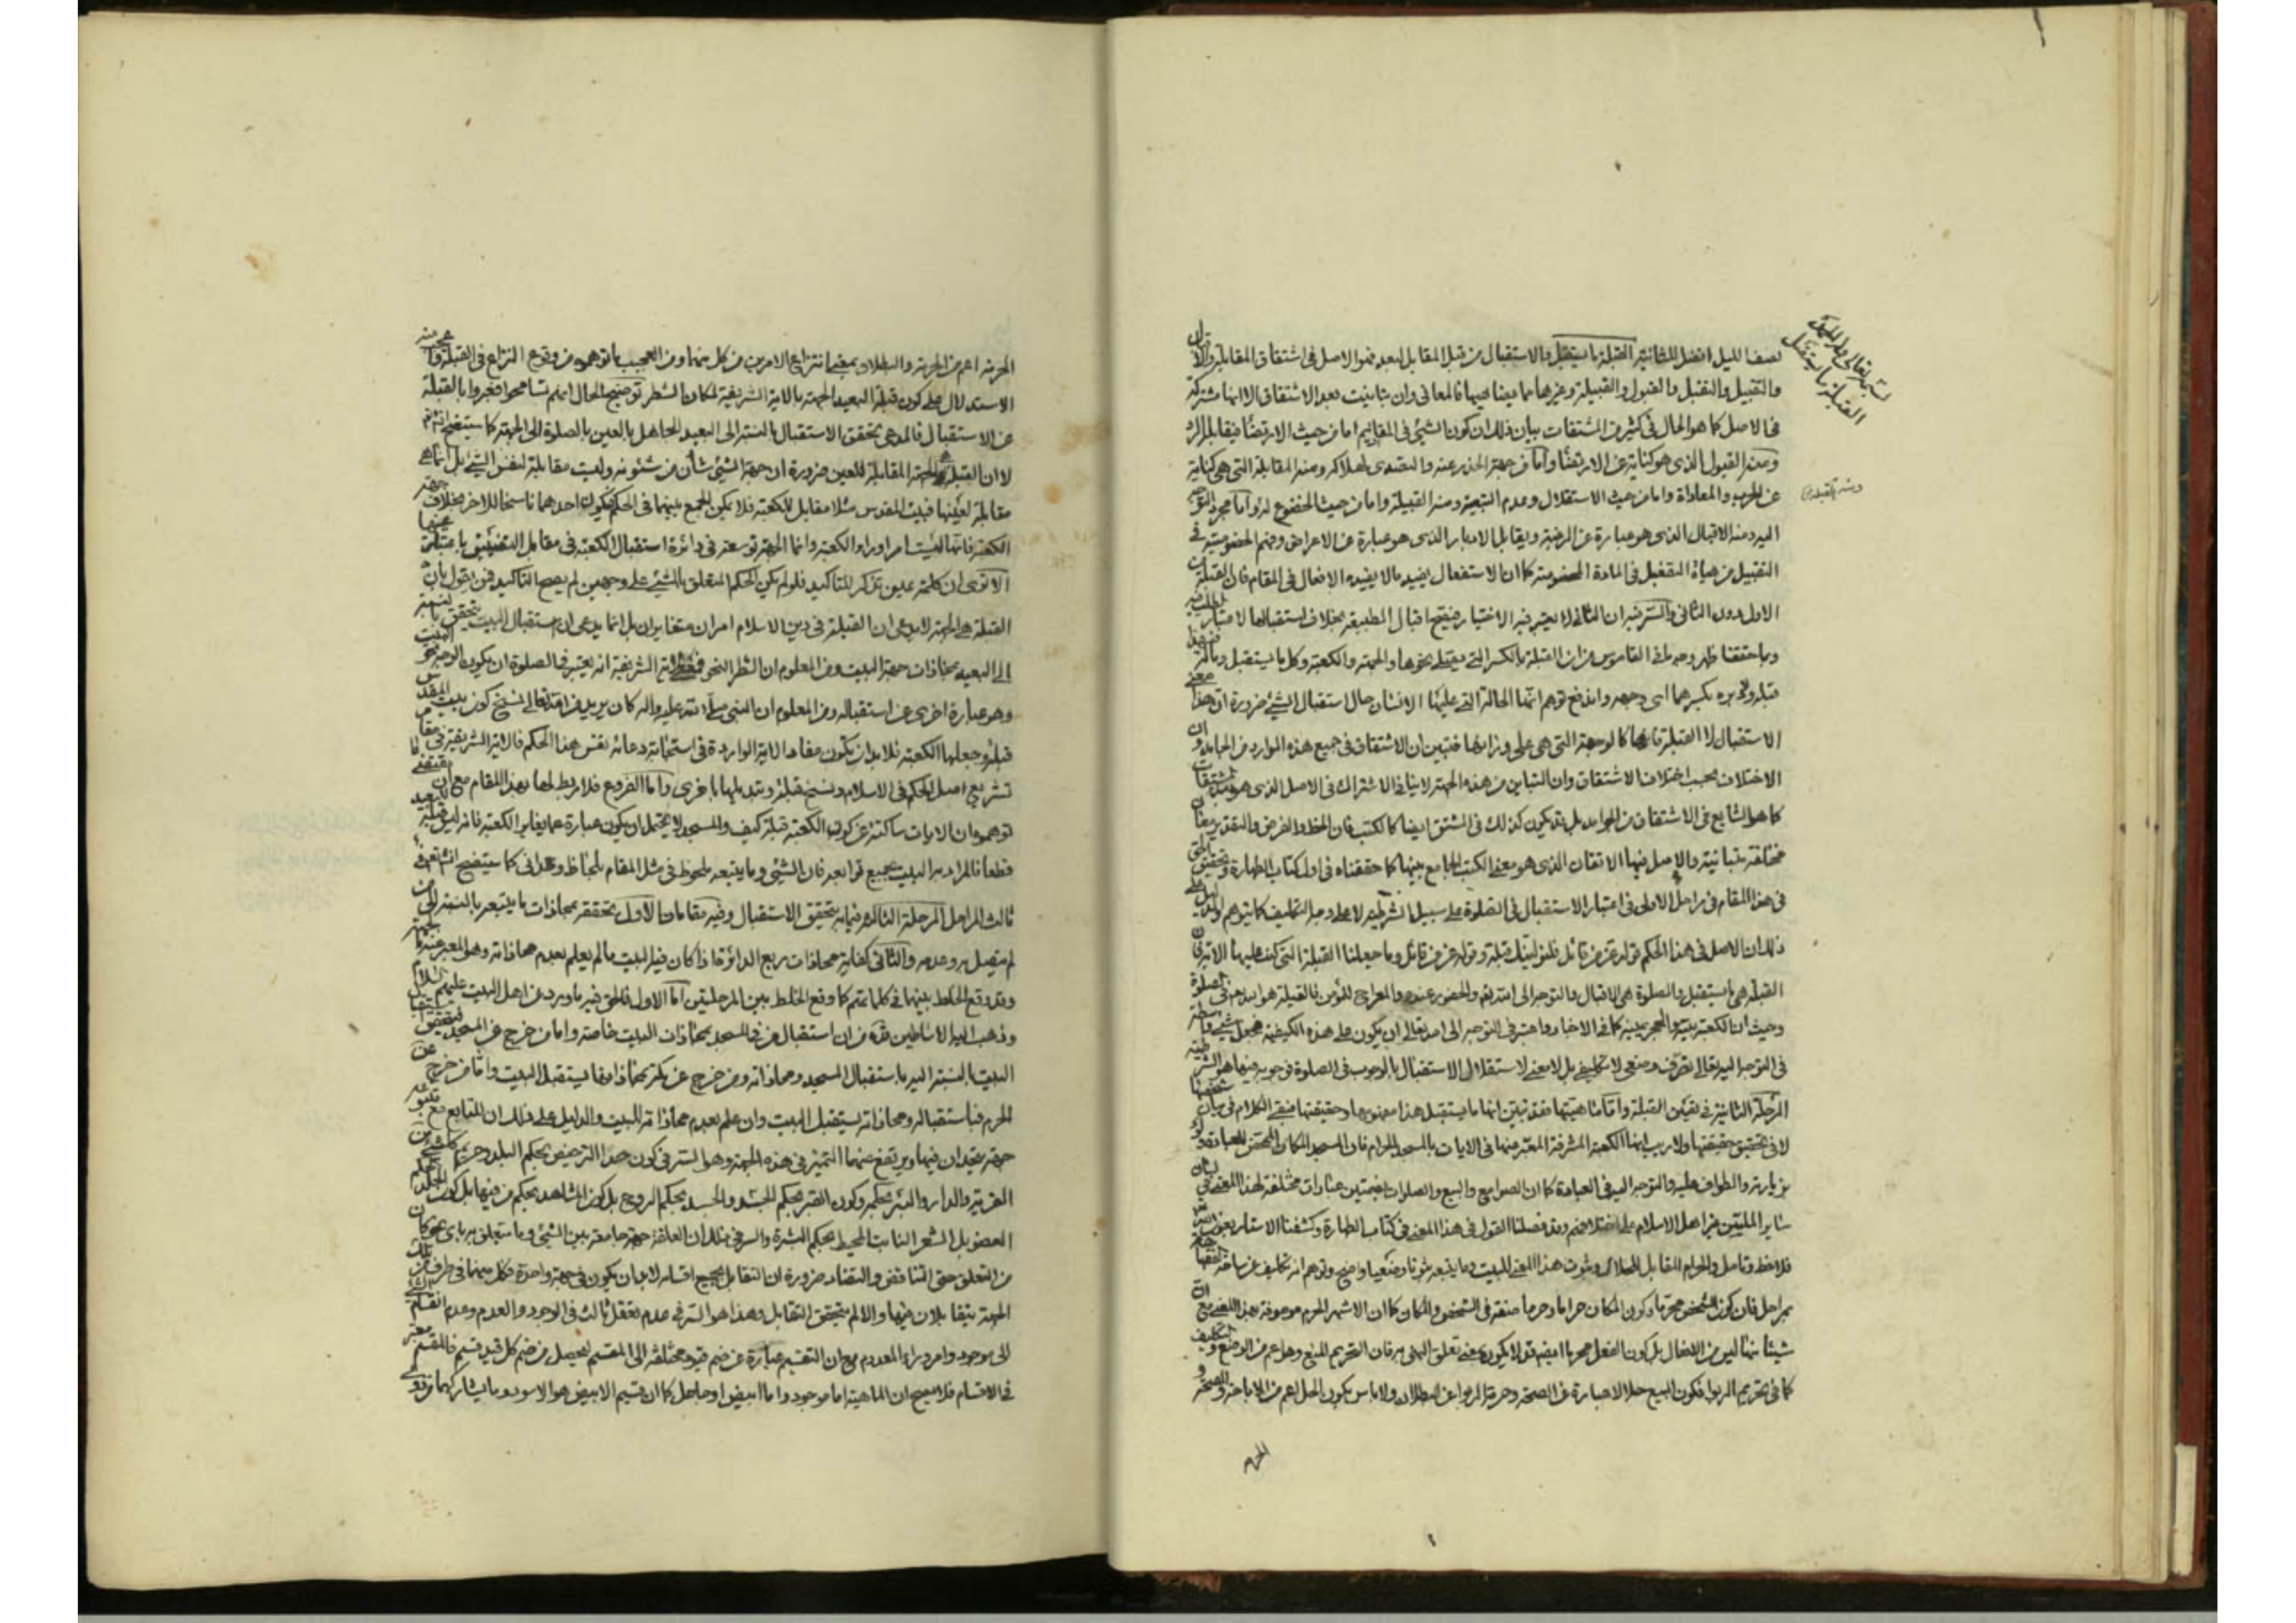 نصف الليل افضل للثانية القبلة ما يستقبل والاستقبال من قبل المقابل لبعد فهو الاصل فى اشتقاق المقابلة والاقبال
والتقبيل والتقبل والقبول والقبيلة وغيرها مما يضاهيها فالمعانى وان تباينت بعد الاشتقاق الا انها مشتركة
فى الاصل كما هو الحال فى كثير من المشتقات بيان ذلك ان كون الشيئ فى المقابيم اما من حيث الارتضاء فيقابل الرد
ومنه القبول الذى هو كناية عن الارتضاء واما من جهة الحذر عنه والتصدى لهلاكه ومنه المقابلة التى هى كناية
عن الحرب والمعاداة واما من حيث الاستقلال وعدم التبعية ومنه القبيلة واما من حيث الخضوع له واما مجرد التوجه
اليه ومنه الاقبال الذى هو عبارة عن الرغبة ويقابل الادبار الذى هو عبارة عن الاعراض وضم الخصوصية فى
التقبيل من هيأة التفعيل فى المادة المخصوصة كما ان الاستفعال يفيد ما لا يفيده الافعال فى المقام فان القبلة
الاول دون الثانى والسر فيه ان الثانى لا يعتبر فيه الاختيار فيصح اقبال المطبيقه بخلاف استقبالها لاعتبار الطلب فيه
وبما حققنا ظهر وجه ما فى القاموس من ان القبلة بالكسر التى يصلى نحوها والجهة والكعبة وكل ما يستقبل وماله فى هذا
قبلة ولا دبرة بكسرهما اى وجهه واندفع توهم انها الحالة التى عليها الانسان حال استقبال الشيئ ضرورة ان هذا معنى
الاستقبال لا القبلة فانها كالوجهة التى هى على وزانها فتبين ان الاشتقاق فى جميع هذه الموارد من الجامد وان
الاختلاف بحسب اختلاف الاشتقاق وان التباين من هذه الجهة لا ينافى الاشتراك فى الاصل الذى هو مبدء المشتقات
كما هو الشايع فى الاشتقاق من الجوامد بل قد يكون كذلك فى المشتق ايضا كالكتب فان الخط والفرض والتقدير معان
مختلفة متباينة والاصل فيها الاتقان الذى هو معنى الكتب الجامع بينها كما حققناه فى اول كتاب الطهارة وتحقيق الحق
فى هذا المقام فى مراحل الاولى فى اعتبار الاستقبال فى الصلوة على سبيل الشرطية لا على وجه التكليف كما يتوهم والدليل على
ذلك ان الاصل فى هذا الحكم قوله عز من قائل فلنولينك قبلة وقوله عز من قائل وما جعلنا القبلة التى كنت عليها الاية فان
القبلة هى ما يستقبل والصلوة هى الاقبال والتوجه الى الله تعالى والحضور عنده والمعراج للمؤمن فالقبلة هو الله تعالى فى الصلوة
وحيث ان الكعبة بيته والحجر يمينه كما فى الاخبار واعتبر فى التوجه الى الله تعالى ان يكون على هذه الكيفية فجعل شيئ واسطة
فى التوجه اليه تعالى تصرف وضعى لا تكليفى بل لا معنى لاستقلال الاستقبال بالوجوب فى الصلوة فوجوبه فيها هو الشرطية
المرحلة الثانية فى تعيين القبلة واما ماهيتها فقد تبين انها ما يستقبل هذا مفهومها وحقيقتها فبقى الكلام فى بيان شخصها
لا فى تحقيق حقيقتها ولا ريب انها الكعبة المشرفة المعبر عنها فى الايات بالمسجد الحرام فان المسجد المكان المختص للعبادة ولو
بزيارته والطواف عليه والتوجه اليه فى العبادة كما ان الصوامع والبيع والصلوات بضمتين عبارات مختلفة لهذا المعنى فى لسان
ساير المليين من اهل الاسلام على اختلافهم وقد فصلنا القول فى هذا المعنى فى كتاب الطهارة وكشفنا الاستار بعون الله تعالى
فلاحظ وتامل والحرام المقابل للحلال وثبوت هذا المعنى للبيت وما يتبعه ثبوتا وضعيا واضح وتوهم انه تكليف عن ساحة الفقها
بمراحل فان كون الشخص محرما وكون المكان حراما وحرما صفة فى الشخص والمكان كما ان الاشهر الحرم موصوفة بهذا المعنى مع ان
شيئا منها ليس من الافعال بل كون الفعل محرما ايضا قد لا يكون بمعنى تعلق النهى به فان التحريم المنع وهو اعم من الوضع والتكليف
كما فى تحريم الربوا فكون البيع حلالا عبارة عن الصحة وحرمة الربوا عن البطلان ولا باس بكون الحل اعم من الاباحة والصحة و
الحرم
بسم الله تعالى وله الحمد
القبلة ما يستقبل
ومنه القبلة
الحرمة اعم من الحرمة والبطلان بمعنى انتزاع الامرين من كل منهما ومن العجيب ما توهموه من وقوع النزاع فى القبلة
الاستدلال على كون قبلة البعيد الجهة بالاية الشريفة لمكان الشطر توضيح الحال انهم تسامحوا فعبروا بالقبلة
عن الاستقبال فالمدعى تحقق الاستقبال بالنسبة الى البعيد الجاهل بالعين بالصلوة الى الجهة كما سيتضح انشاء الله
لا ان القبلة هى الجهة المقابلة للعين ضرورة ان جهة الشيئ شأن من شئونه وليست مقابلة لنفس الشيئ بل انما هى
مقابلة لعينها فبيت المقدس مثلا مقابل للكعبة فلا يمكن الجمع بينهما فى الحكم فيكون احدهما ناسخا للاخر بخلاف جهة
الكعبة فانها ليست امرا وراء الكعبة وانما الجهة توسعة فى دائرة استقبال الكعبة فى مقابل التضييق باعتبار عينها
الا ترى ان كلمة عين تذكر للتاكيد فلو لم يكن الحكم المتعلق بالشيئ على وجهين لم يصح التاكيد فمن يقول بان
القبلة هى الجهة لا يدعى ان القبلة فى دين الاسلام امران متغايران بل انما يدعى ان استقبال البيت يتحقق بالنسبة
الى البعيد بمحاذات جهة البيت ومن المعلوم ان الشطر النحو فمفاد الاية الشريفة انه يعتبر فى الصلوة ان يكون الوجه نحو البيت
وهو عبارة اخرى عن استقباله ومن المعلوم ان النبى صلى الله عليه واله كان يريد من الله تعالى نسخ كون بيت المقدس
قبلة وجعلها الكعبة فلا بد ان يكون مفاد الاية الواردة فى استجابة دعائه نفس هذا الحكم فالاية الشريفة فى مقام
تشريع اصل الحكم فى الاسلام ونسخ قبلة وتبديلها باخرى واما الفروع فلا ربط لها بهذا المقام مع ان مقتضى ما
توهموه ان الايات ساكتة عن كون الكعبة قبلة كيف والمسجد لا يحتمل ان يكون عبارة عما يغاير الكعبة فانه ليس قبلة للبعيد
قطعا فالمراد به البيت بجميع توابعه فان الشيئ وما يتبعه ملحوظ فى مثل المقام بلحاظ وحدانى كما سيتضح انشاء الله تعالى فى
ثالث المراحل المرحلة الثالثة فيما به يتحقق الاستقبال وفيه مقامان الاول تحققه بمحاذات ما يتبعه بالنسبة الى من
لم يتصل به وعدمه والثانى كفاية محاذات ربع الدائرة اذا كان فيه البيت ما لم يعلم بعدم محاذاته وهو المعبر عنه بالجهة
وقد وقع الخلط بينهما فى كلماتهم كما وقع الخلط بين المرحلتين اما الاول فالحق فيه ما ورد عن اهل البيت عليهم السلام
وذهب اليه الاساطين قده من ان استقبال من فى المسجد بمحاذات البيت خاصة واما من خرج عن المسجد فيتحقق استقبال
البيت بالنسبة اليه باستقبال المسجد ومحاذاته ومن خرج عن مكة بمحاذاتها يستقبل البيت واما من خرج عن
الحرم فباستقباله ومحاذاته يستقبل البيت وان علم بعدم محاذاته للبيت والدليل على ذلك ان المتابع مع متبوعه
جهة يتحدان فيها ويرتفع عنهما التميز فى هذه الجهة وهو السر فى كون حد الترخيص بحكم البلد وحريم كل شيئ
القرية والدار والبئر بحكمه وكون القبر بحكم الجسد والجسد بحكم الروح بل كون المشاهد بحكم من فيها بل كون
العضو بل الشعر النابت المحيط بحكم البشرة والسر فى ذلك ان العلقة جهة جامعة بين الشيئ وما يتعلق به باى نحو كان
من التعلق حتى التناقض والتضاد ضرورة ان التقابل بجميع اقسامه لا بد ان يكون فى جهة واحدة فكل منهما فى طرف من تلك
الجهة يتقابلان فيها والا لم يتحقق التقابل وهذا هو السر فى عدم تعقل ثالث فى الوجود والعدم وعدم انقسام الشيئ
الى موجود وامر وراء المعدوم مع ان التقسيم عبارة عن ضم قيود مختلفة الى المقسم ليحصل من ضم كل قيد قسيم فالمقسم معتبر
فى الاقسام فلا يصح ان الماهية اما موجود واما ابيض او جاهل كما ان قسيم الابيض هو الاسود وما يشاركهما